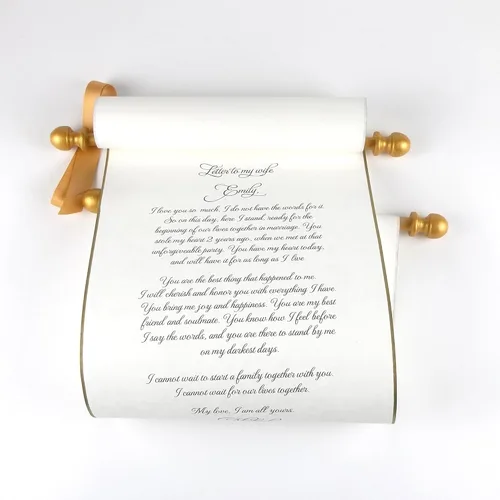 Letter to my wife
Emily,
I love you so much, I do not have the words for it.
So on this day, here I stand, ready for the
beginning of our lives together in marriage. You
stole my heart 3 years ago, when we met at that
unforgettable party. You have my heart today,
and will have it for us long as I live.
You are the best thing that happened to me.
I will cherish and honor you with everything I have.
You bring me joy and happiness. You are my best
friend and soulmate. You know how I feel before
I say the words, and you are there to stand by me
on my darkest days.
I cannot wait to start a family together with you.
I cannot wait for our lives together.
My love, I am all yours.